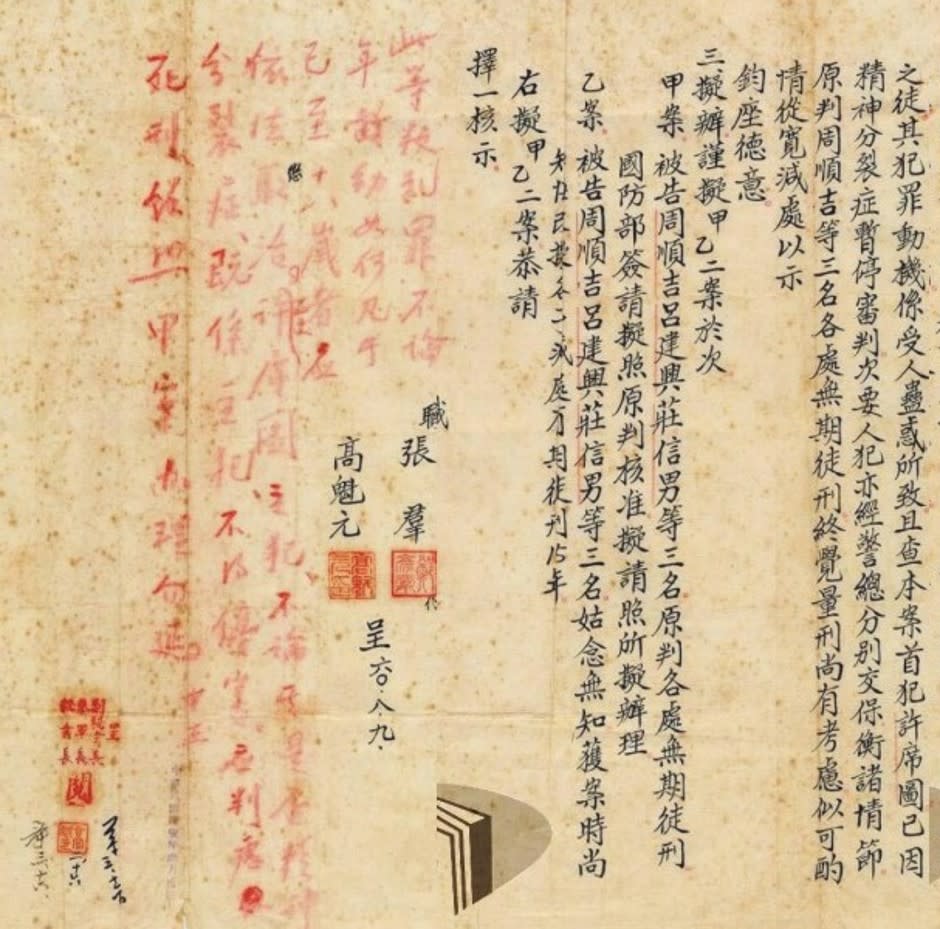 之徒其犯罪動機係受人蠱惑所致且查本案首犯許席圖已因
精神分裂症暫停審判次要人犯亦經警總分別交保衡諸情節
原判周順吉等三名各處無期徒刑終覺量刑尚有考慮似可酌
情從寬減處以示
鈞座德意
三、擬辦謹擬甲乙二案於次
甲案 被告周順吉呂建興莊信男等三名原判各處無期徒刑
國防部簽請擬照原判核准擬請照所擬辦理
乙案 被告周順吉呂建興莊信男等三名姑念無知獲案時尚
知悔
處有期徒刑15年
右擬甲乙二案恭請
擇一核示
職
張羣
高魁元
呈六〇、八、九、
此等叛亂罪不論
年齡幼
已至十八歲者應
依法嚴治
許席圖之犯、不論其是否精神
分裂症既係主犯不得停審應判處
死刑餘照甲案辦理勿延
呈
副秘書長
參軍長
秘書長
閱